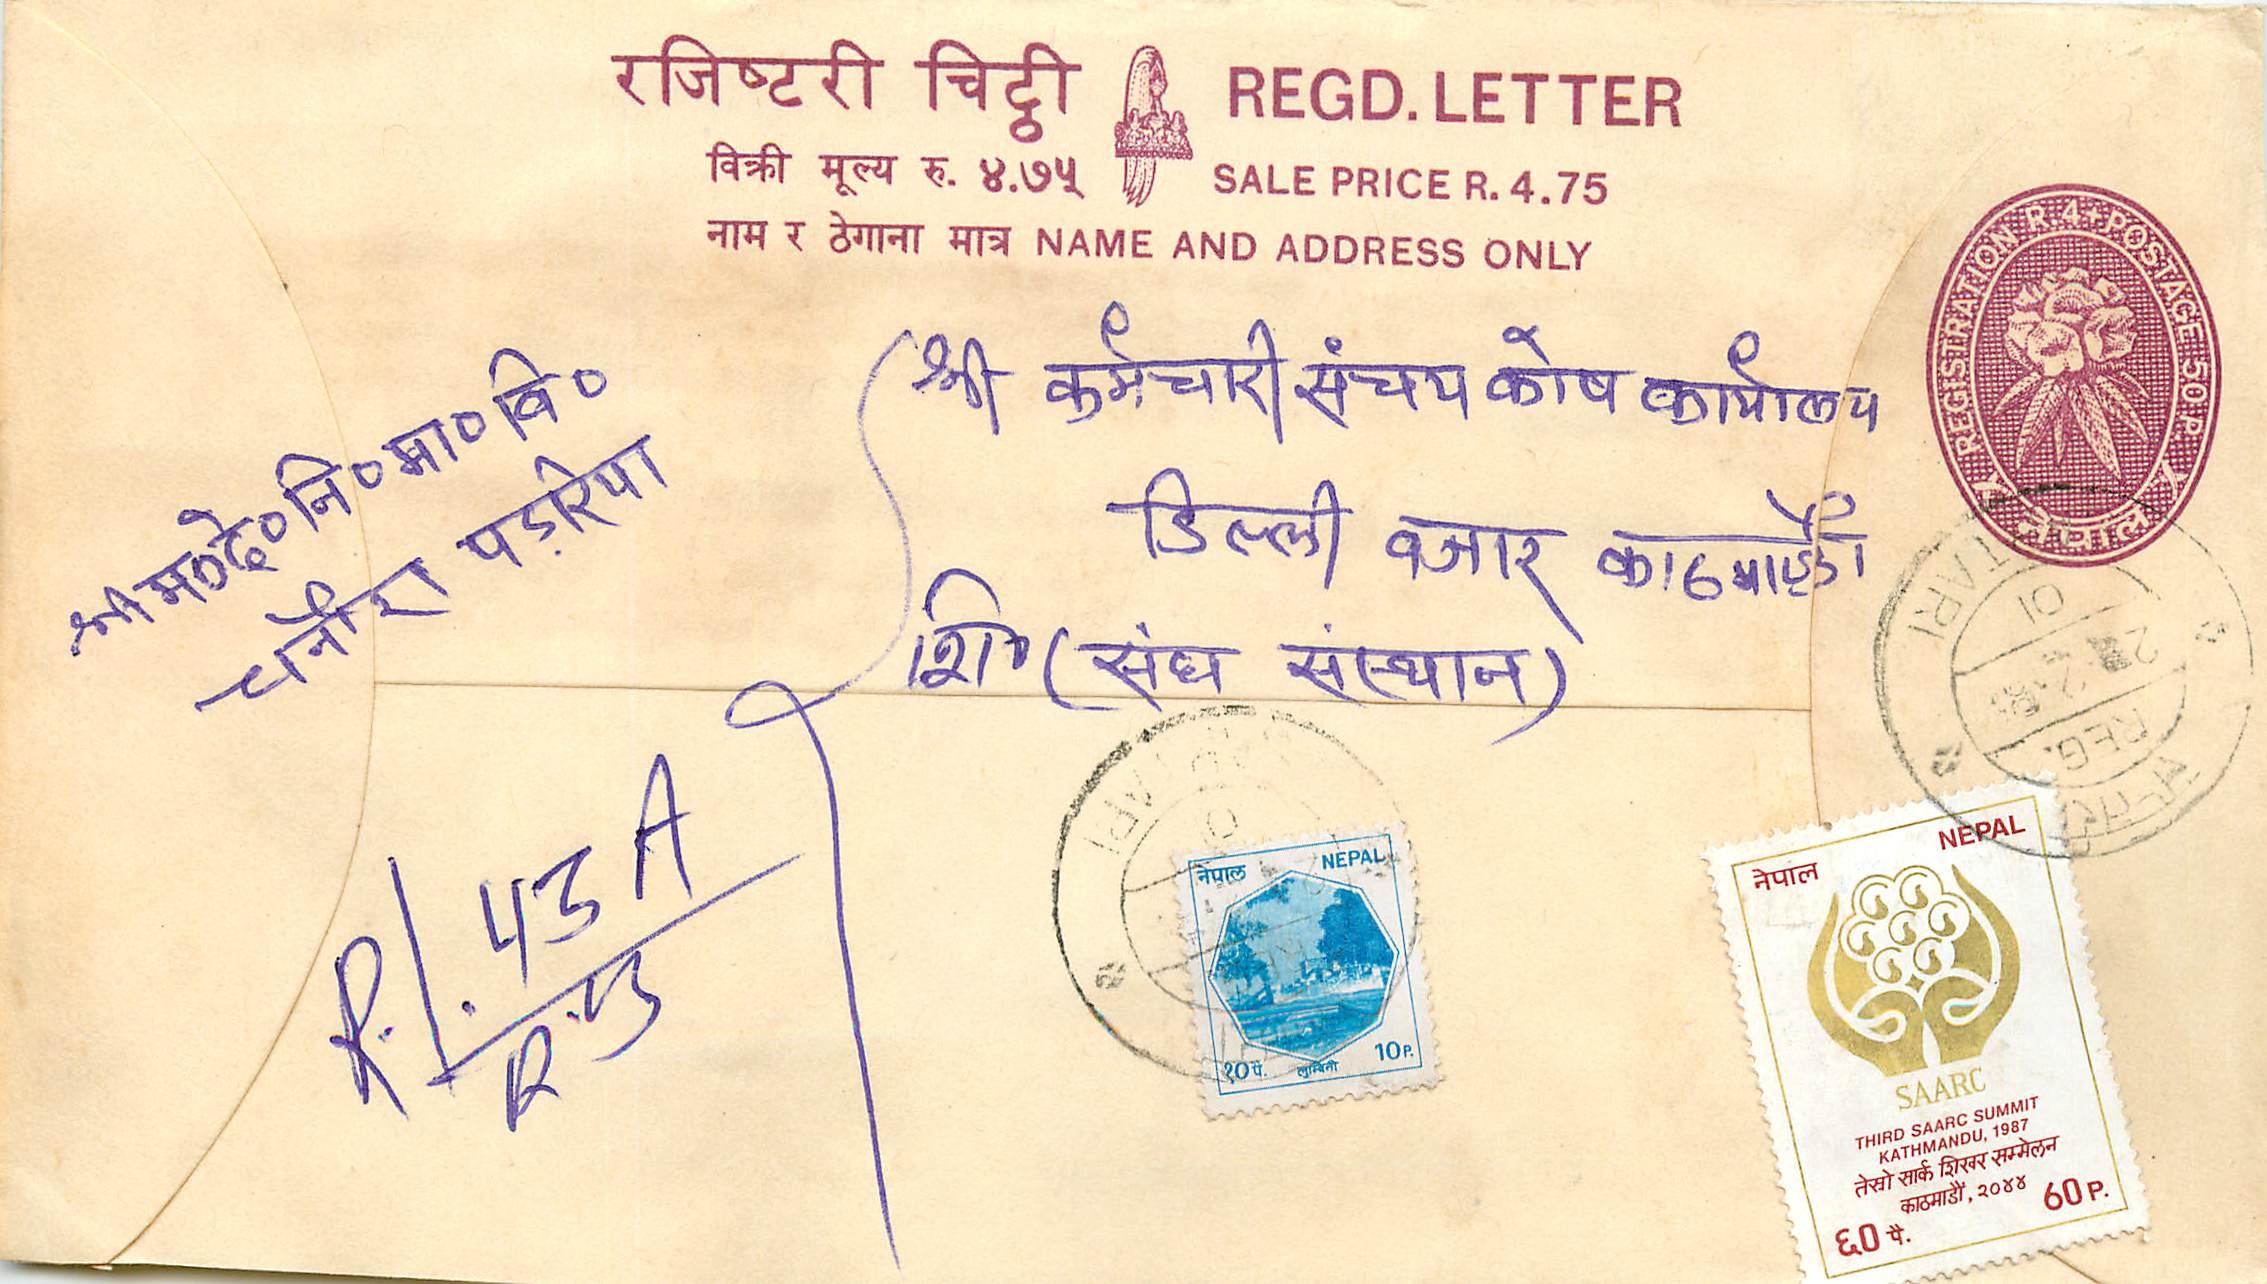 रजिष्टरी चिट्ठी REGD. LETTER
विक्री मूल्य रु. ४.७५ SALE PRICE R. 4.75
नाम र ठेगाना मात्र NAME AND ADDRESS ONLY
REGISTRATION R.4+POSTAGE 50 P.
नेपाल
श्री कर्मचारी संचय कोष कार्यालय
डिल्ली वजार काठमाण्डौ
शि० (संघ संस्थान)
श्री म०दे०नि०मा०वि०
धनौरा पडरिया
R.L. 43 A
TARI
01
REG.
ARI
01
नेपाल NEPAL
१०पै. लुम्बिनी 10P.
नेपाल NEPAL
SAARC
THIRD SAARC SUMMIT
KATHMANDU, 1987
तेस्रो सार्क शिखर सम्मेलन
काठमाडौं, २०४४
६० पै. 60 P.